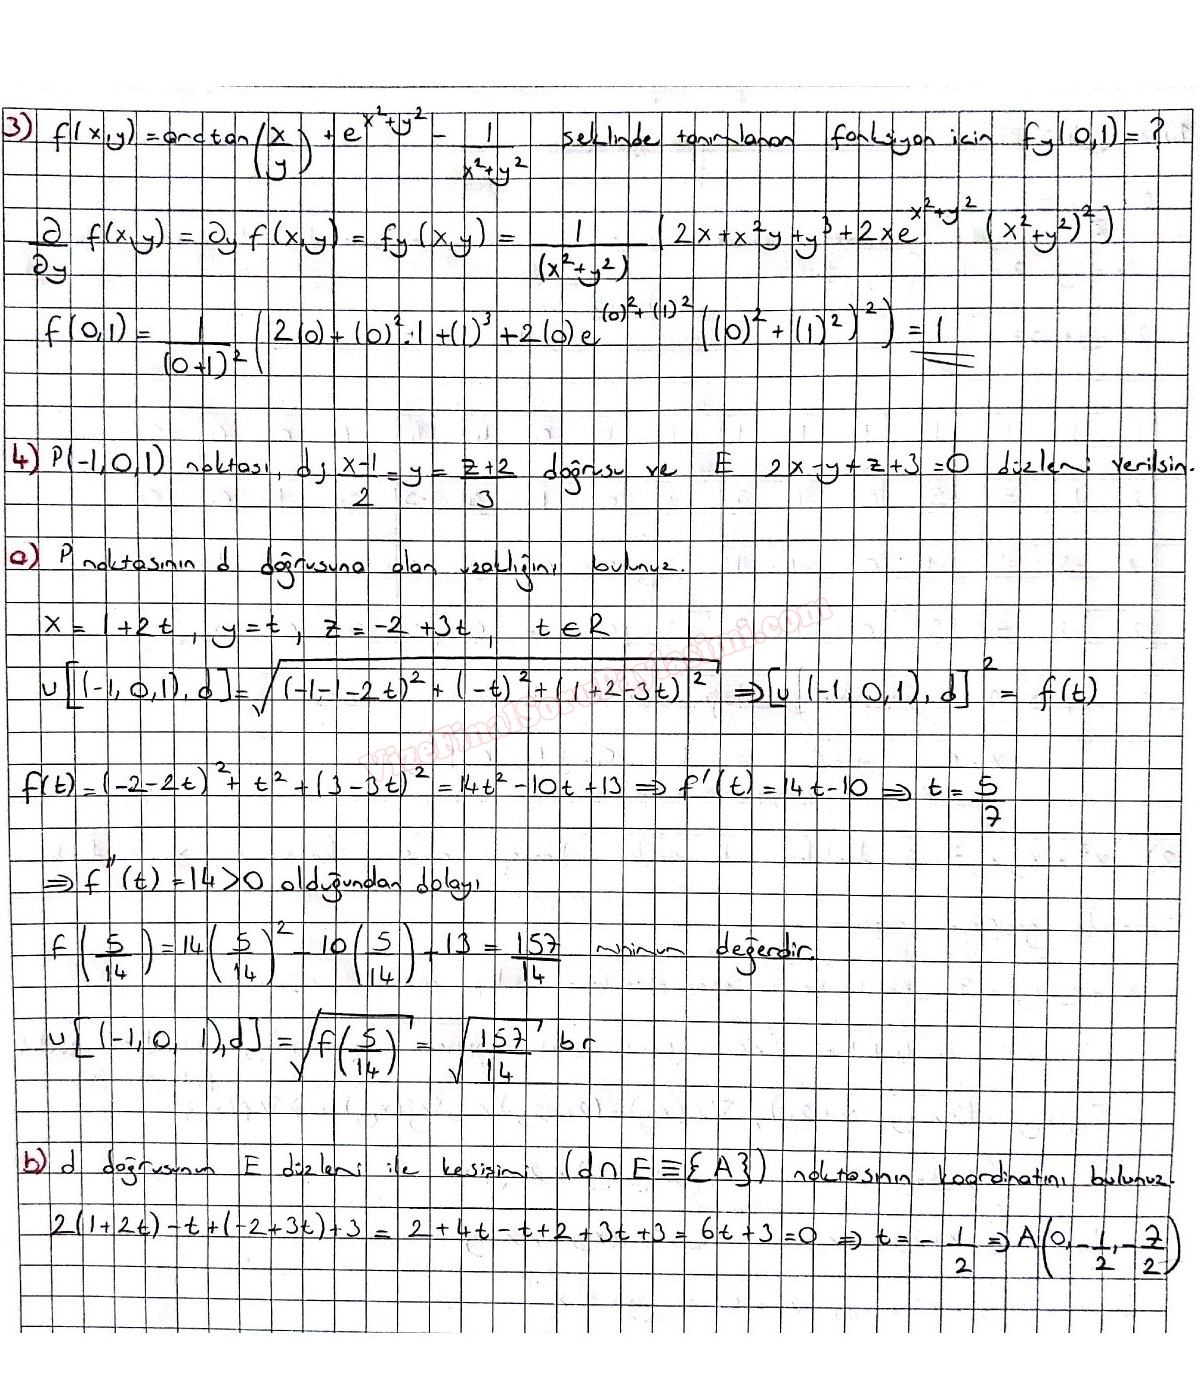 3) f(x,y) = arctan(x/y) + e^(x²+y²) - 1/(x²+y²) seklinde tanımlanan fonksiyon icin fy(0,1) = ?
∂/∂y f(x,y) = ∂y f(x,y) = fy(x,y) = 1/(x²+y²) (2x+x²y+y³+2xe^(x²+y²) (x²+y²)²)
f(0,1) = 1/(0+1)² (2(0)+(0)².1+(1)³+2(0)e^((0)²+(1)²) ((0)²+(1)²)²) = 1
4) P(-1,0,1) noktası, d; (x-1)/2 = y = (z+2)/3 doğrusu ve E 2x-y+z+3=0 düzlemi verilsin.
a) P noktasının d doğrusuna olan uzaklığını bulunuz.
x = 1+2t, y=t, z = -2+3t, t∈R
u[(-1,0,1),d] = √((-1-1-2t)²+(-t)²+(1+2-3t)²) ⇒ [u(-1,0,1),d]² = f(t)
f(t) = (-2-2t)²+t²+(3-3t)² = 14t²-10t+13 ⇒ f'(t) = 14t-10 ⇒ t = 5/7
⇒ f''(t) = 14>0 olduğundan dolayı
f(5/14) = 14(5/14)² - 10(5/14) + 13 = 157/14 minimum değerdir.
u[(-1,0,1),d] = √(f(5/14)) = √(157/14) br
b) d doğrusunun E düzlemi ile kesişimi (d∩E≡{A}) noktasının koordinatını bulunuz.
2(1+2t)-t+(-2+3t)+3 = 2+4t-t+2+3t+3 = 6t+3=0 ⇒ t = -1/2 ⇒ A(0,-1/2,-7/2)
VizeFinalSoruPaylasimi.com